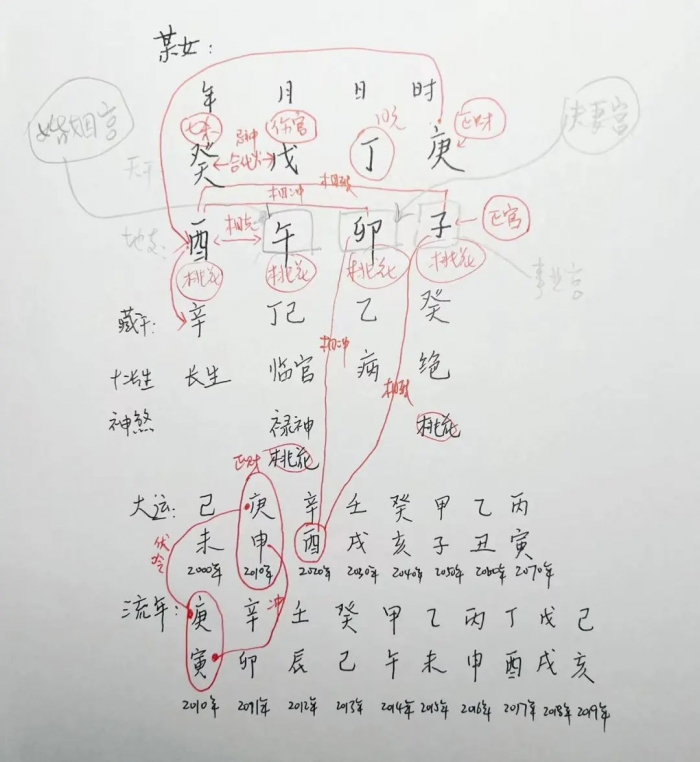 某女：
年 月 日 时
七杀 忌神 合化火 伤官 日元 正财
癸 戊 丁 庚
婚姻宫 夫妻宫
天干
相冲 相破
地支： 酉 相克 午 卯 子 正官
桃花 桃花 桃花 桃花
事业宫
藏干： 辛 丁己 乙 癸
相冲
十二长生 长生 临官 病 绝
相破
神煞 禄神 桃花
正财 桃花
大运： 己 庚 辛 壬 癸 甲 乙 丙
伏吟 未 申 酉 戌 亥 子 丑 寅
2000年 2010年 2020年 2030年 2040年 2050年 2060年 2070年
流年： 庚 辛 冲 壬 癸 甲 乙 丙 丁 戊 己
寅 卯 辰 巳 午 未 申 酉 戌 亥
2010年 2011年 2012年 2013年 2014年 2015年 2016年 2017年 2018年 2019年